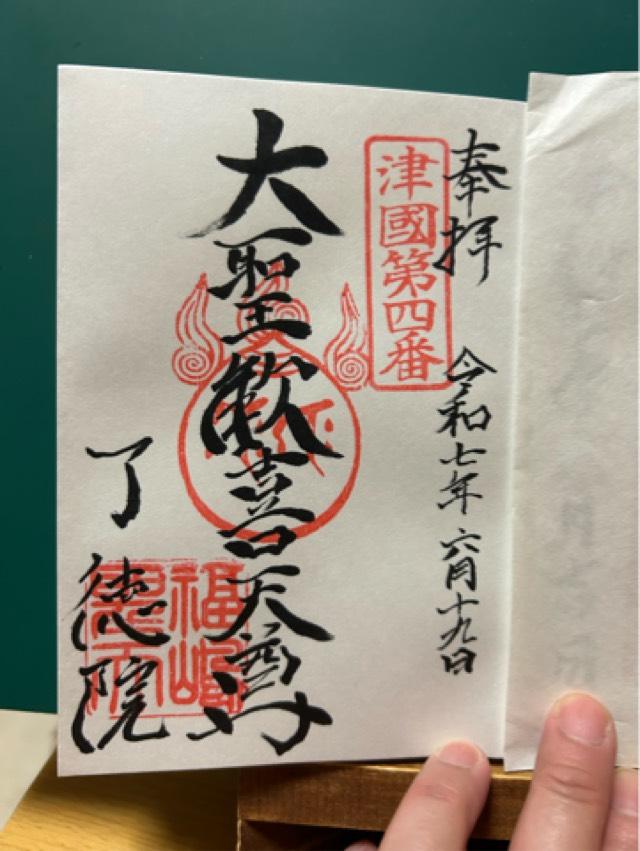 奉拝
令和七年 六月十九日
津國第四番
大聖歓喜天尊
了徳院
福嶋